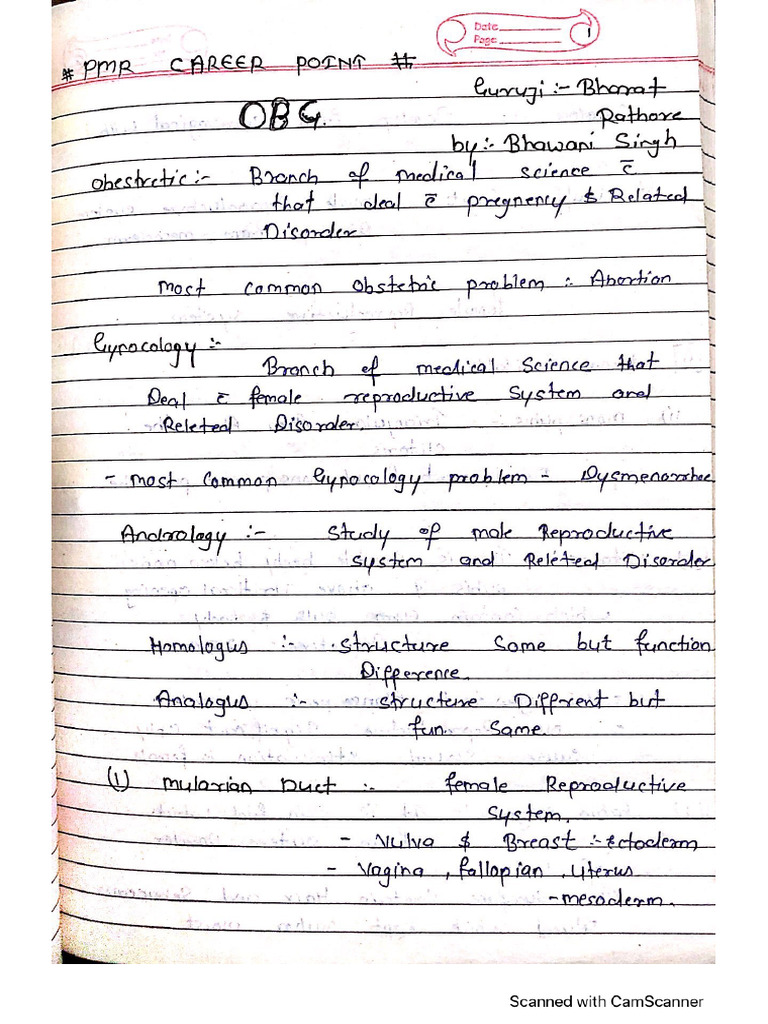 Date
Page 1
# PMR CAREER POINT #
Guruji :- Bharat
Rathore
OBG.
by :- Bhawani Singh
Obestretic :- Branch of medical science c̄
that deal c̄ pregnency & Related
Disorder
most common obstetric problem :- Abortion
Gynocology :-
Branch of medical Science that
Deal c̄ female reproductive System and
Releted Disorder.
- most common Gynocology problem - Dysmenorrhoe
Andrology :- Study of male Reproductive
system and Releted Disorder
Homologus :- structure Same but function
Difference.
Analogus :- structure Different but
fun. Same.
(1) mularian Duct :- female Reproductive
System.
- Vulva & Breast :- Ectoderm
- Vagina, fallopian, Uterus
- mesoderm.
Scanned with CamScanner